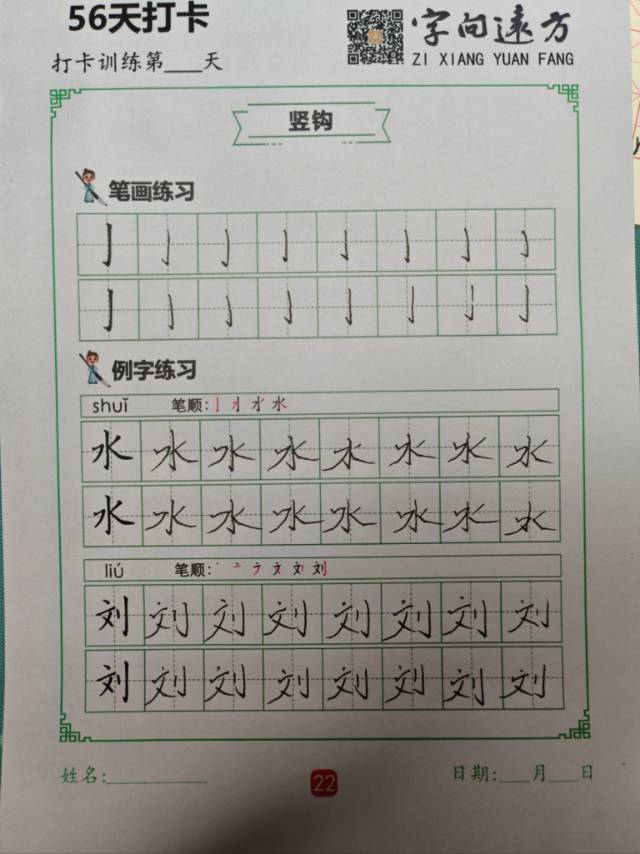 56天打卡
字向远方
打卡训练第___天
ZI XIANG YUAN FANG
竖钩
笔画练习
亅亅亅亅亅亅亅亅
亅亅亅亅亅亅亅亅
例字练习
shuǐ 笔顺:
水水水水水水水水
水水水水水水水水
liú 笔顺:
刘刘刘刘刘刘刘刘
刘刘刘刘刘刘刘刘
姓名:_________ 22 日期:___月___日